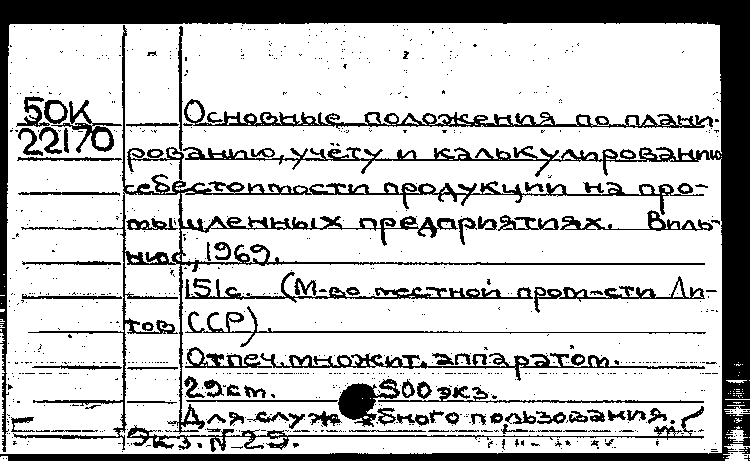 50К
22170
Основные положения по плани-
рованию, учёту и калькулированию
себестоимости продукции на про-
мышленных предприятиях. Виль-
нюс, 1969.
151с. (М-во местной пром-сти Ли-
тов ССР).
Отпеч. множит. аппаратом.
29см. 300 экз.
Для служебного пользования.
Экз. N 29.